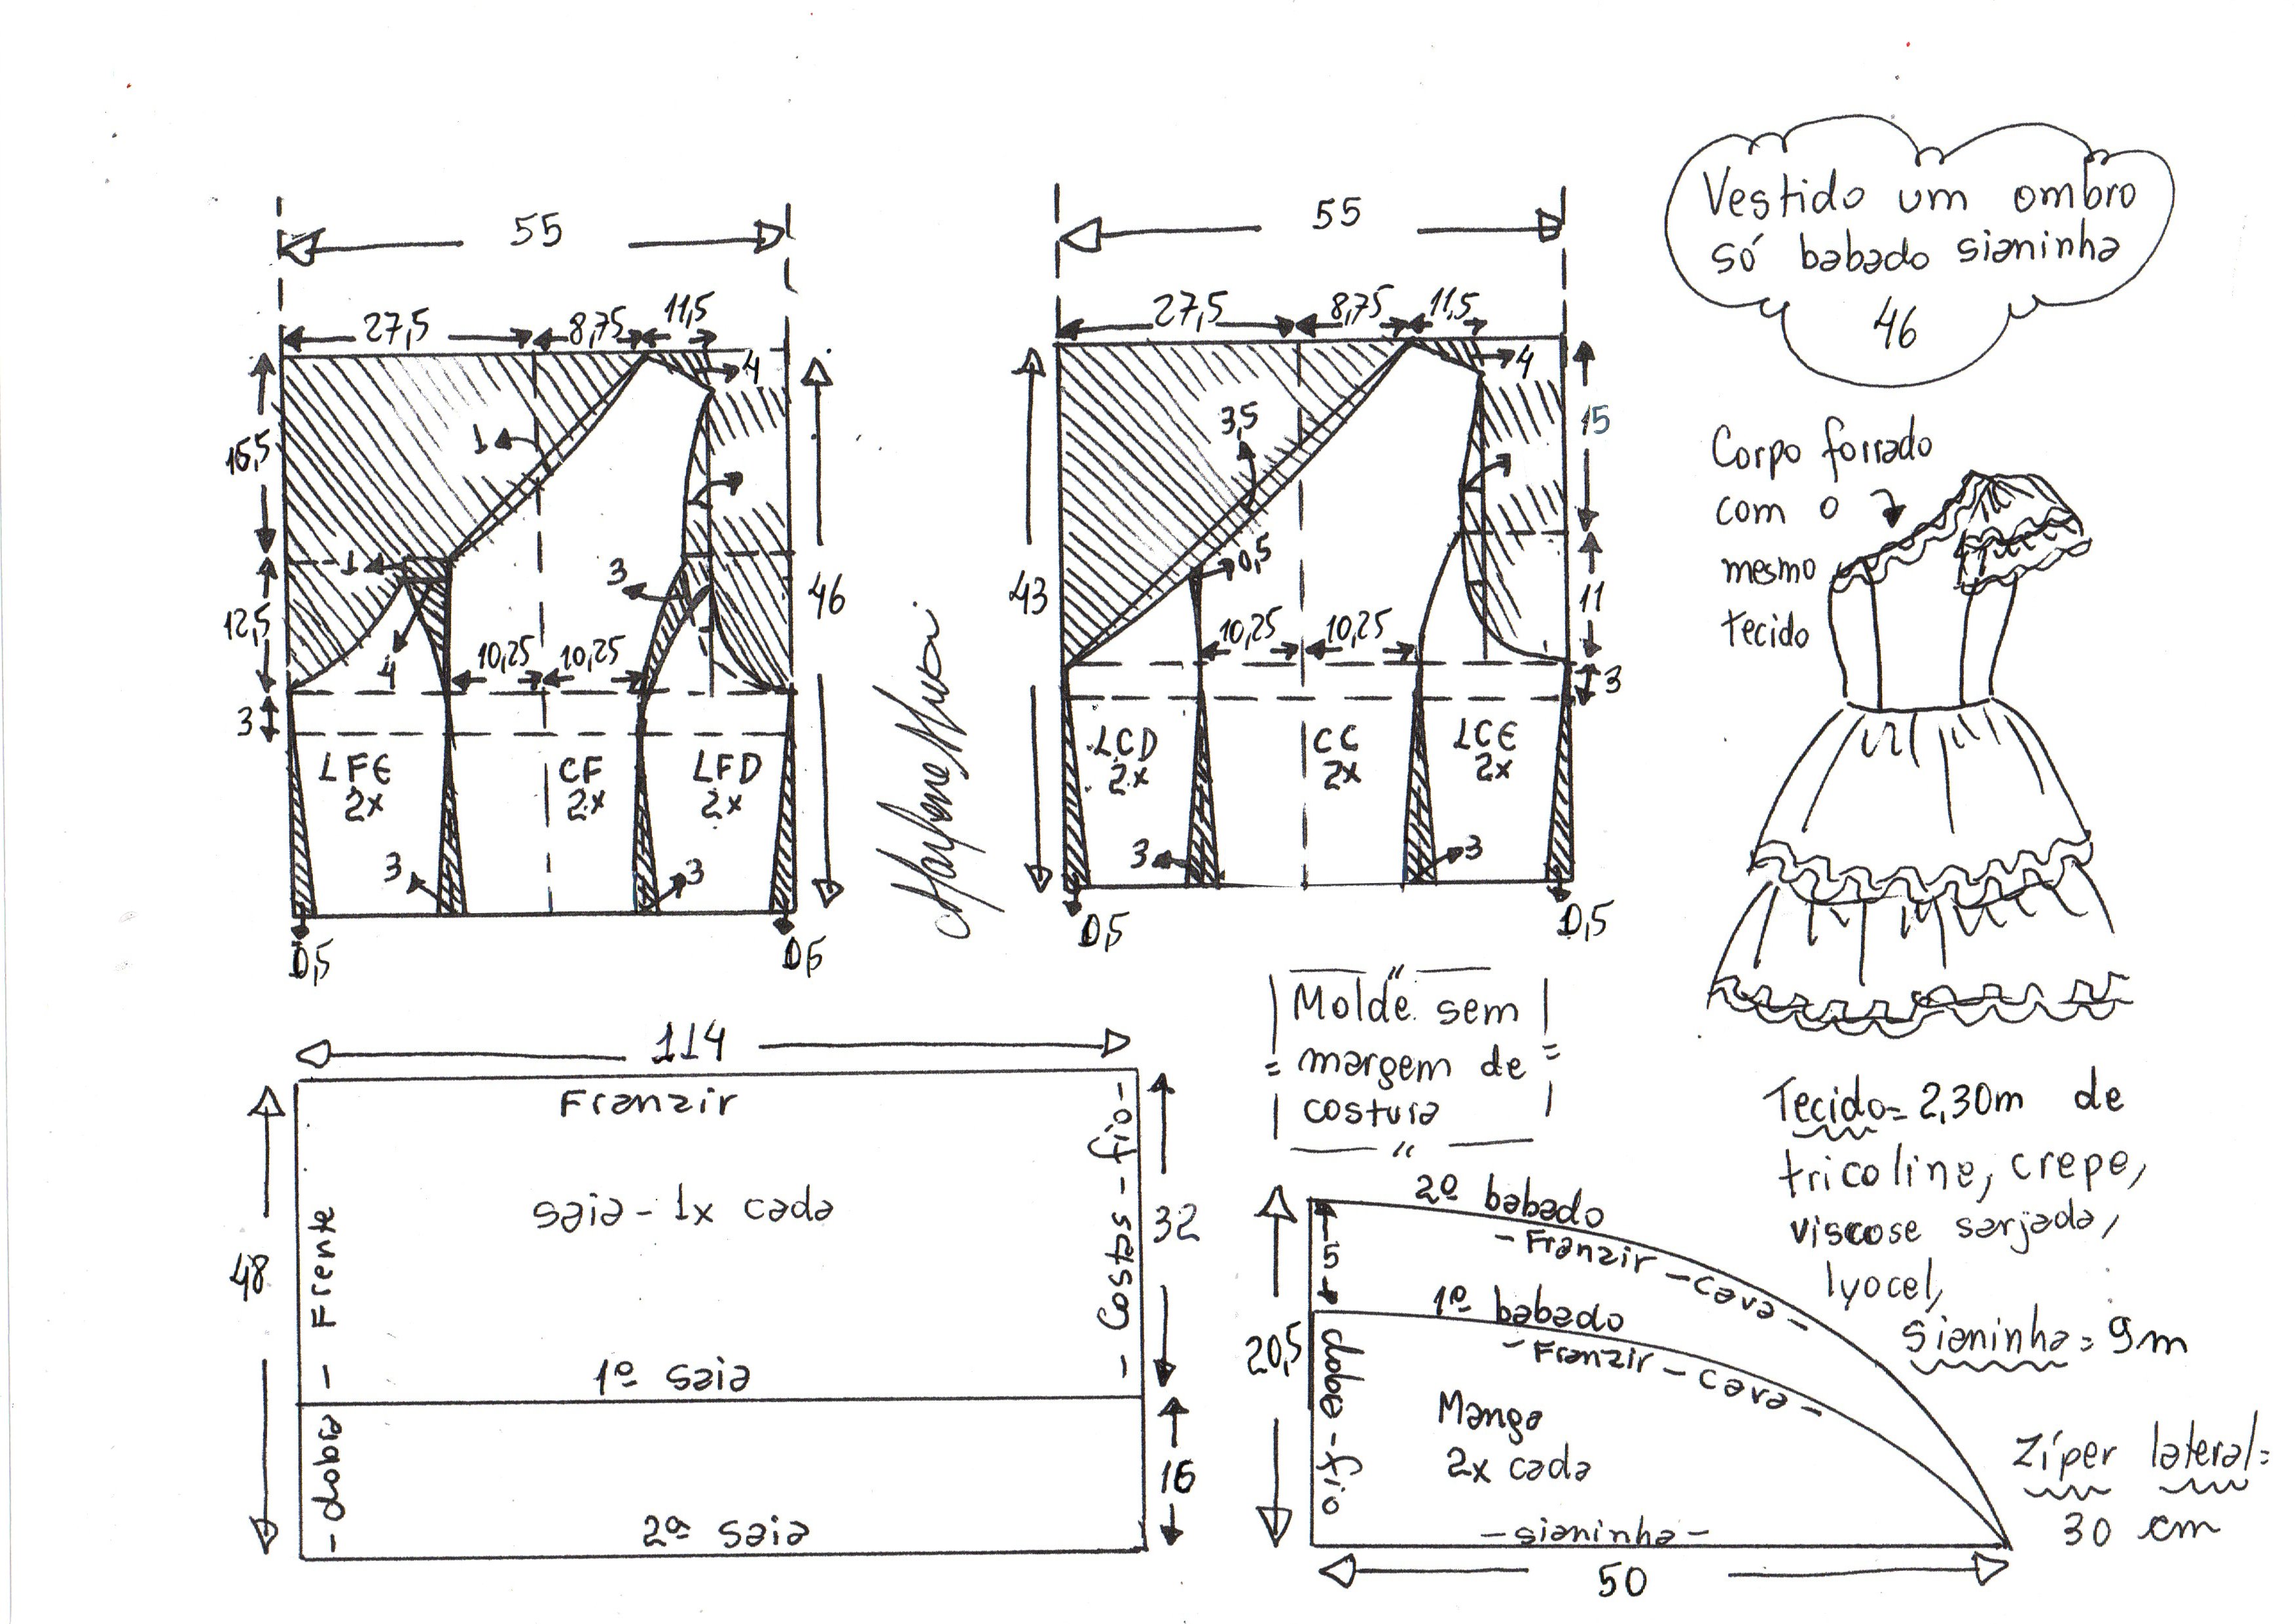 55
27,5
8,75
11,5
4
16,5
1
1
12,5
3
4
10,25
10,25
46
3
LFE
2x
CF
2x
LFD
2x
3
3
0,5
0,5
55
27,5
8,75
11,5
4
15
3,5
43
0,5
11
10,25
10,25
3
LCD
2x
CC
2x
LCE
2x
3
3
0,5
0,5
Vestido um ombro
só babado sianinha
46
Corpo forrado
com o
mesmo
tecido
114
Franzir
saia - 1x cada
48
- Frente
- Costas - fio -
32
1ª saia
- dobra
16
2ª saia
Molde sem
margem de
costura
Tecido = 2,30m de
tricoline, crepe,
viscose sarjada,
lyocel,
sianinha = 9m
Zíper lateral =
30 cm
2º babado
- Franzir - cava -
5
1º babado
- Franzir - cava -
20,5
dobra - fio
Manga
2x cada
- sianinha -
50